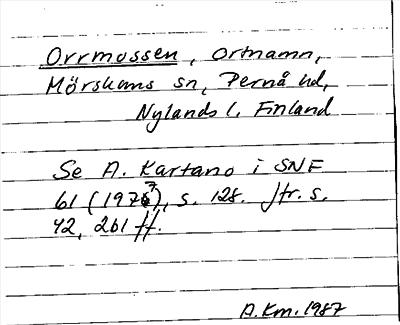 Orrmossen, ortnamn,
Mörskoms sn, Pernå hd,
Nylands l, Finland
Se A. Kartano i SNF
61 (1973), s. 128. Jfr. s.
42, 261 ff.
A.Km. 1987